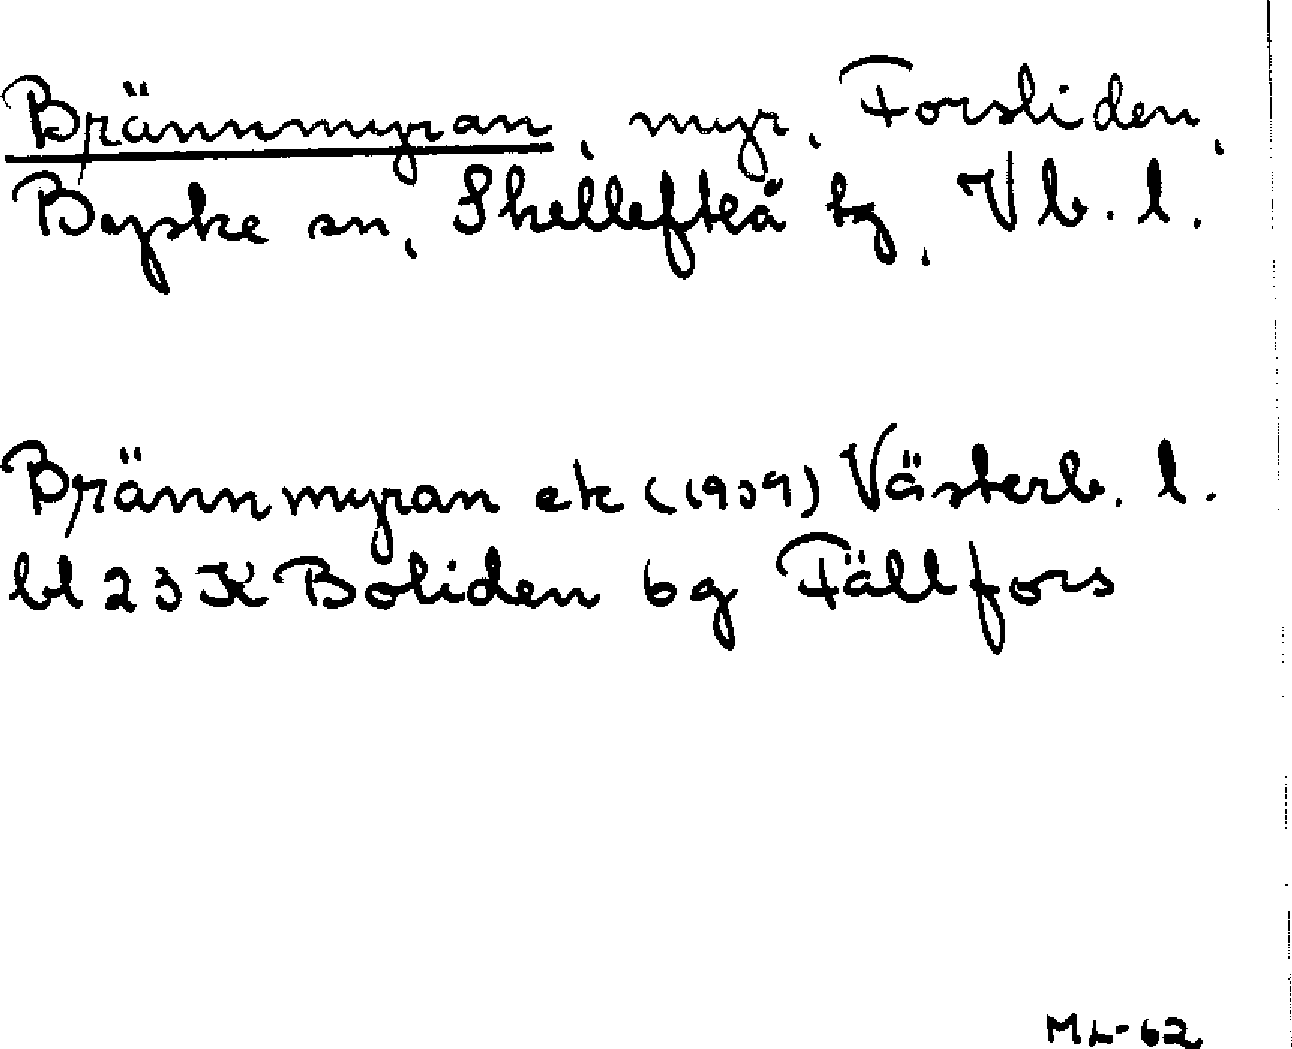 Brännmyran, myr, Forsliden,
Byske sn, Skellefteå tg, Vb. l.
Brännmyran ek (1959) Västerb. l.
bl 23 K Boliden 6g Fällfors
ML-62